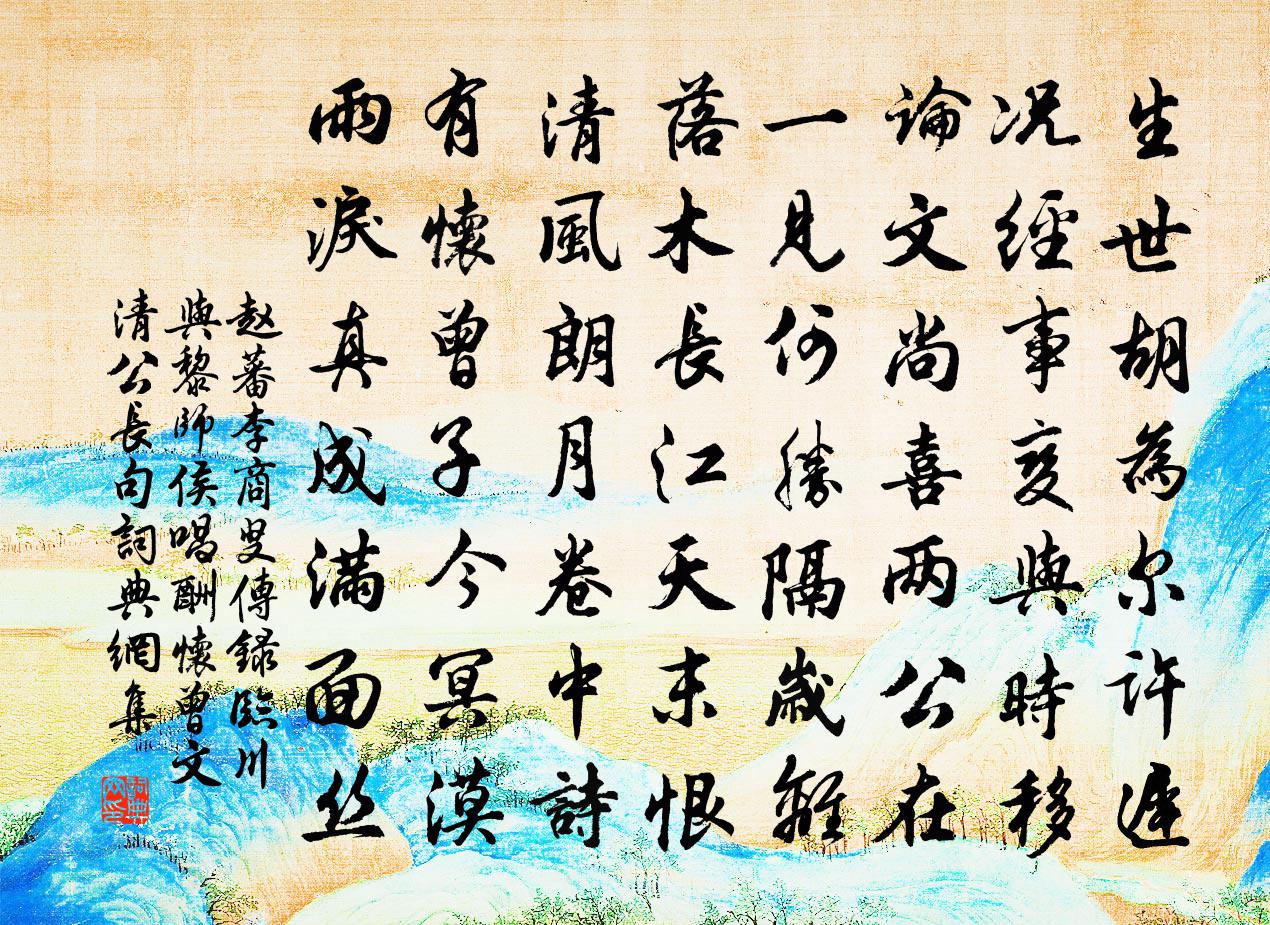 生世胡為尔許遲
況經事變與時移
論文尚喜两公在
一見何勝隔歲離
落木長江天末恨
清風朗月卷中詩
有懷曾子今冥漠
雨淚真成滿面丝
赵蕃李商叟傳錄臨川
與黎師侯唱酬懷曾文
清公長句詞典網集